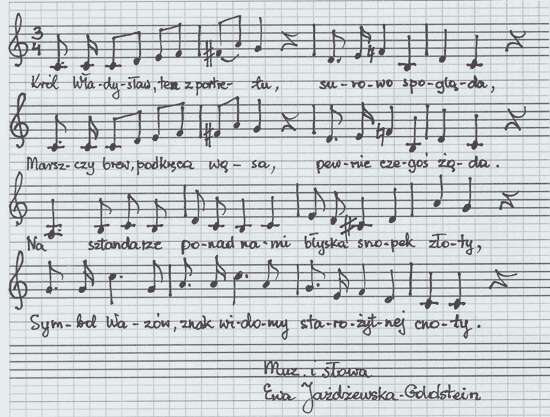 3
4
Król Wła-dy-sław, ten z portre-tu, su-ro-wo spo-glą-da,
Marsz-czy brew, podkręca wą-sa, pew-nie cze-goś żą-da.
Na sztandarze po-nad na-mi błyska sno-pek zło-ty,
Sym-bol Wa-zów, znak wi-do-my sta-ro-żyt-nej cno-ty.
Muz. i słowa
Ewa Jażdżewska-Goldstein